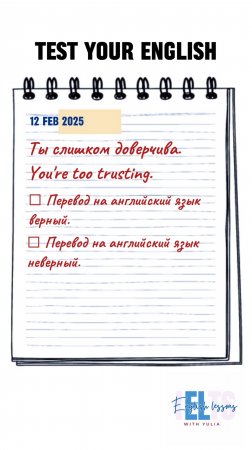 TEST YOUR ENGLISH
12 FEB 2025
Ты слишком доверчива.
You're too trusting.
Перевод на английский язык
верный.
Перевод на английский язык
неверный.
IELTS
English lessons
WITH YULIA